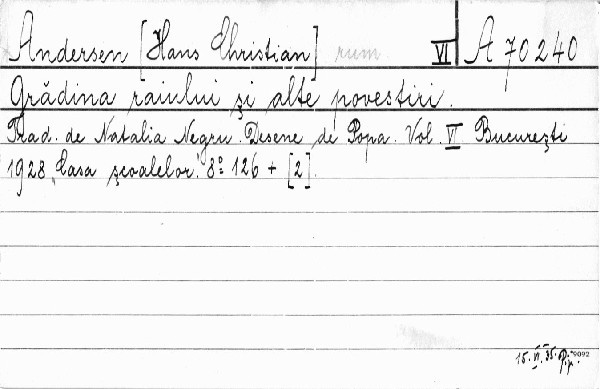 Andersen [Hans Christian] rum. VI A 70240
Grădina raiului și alte povestiri.
Trad. de Natalia Negru. Desene de Popa. Vol. VI București
1928 "Casa școalelor." 8° 126 + [2].
15. VI. 35. 9092